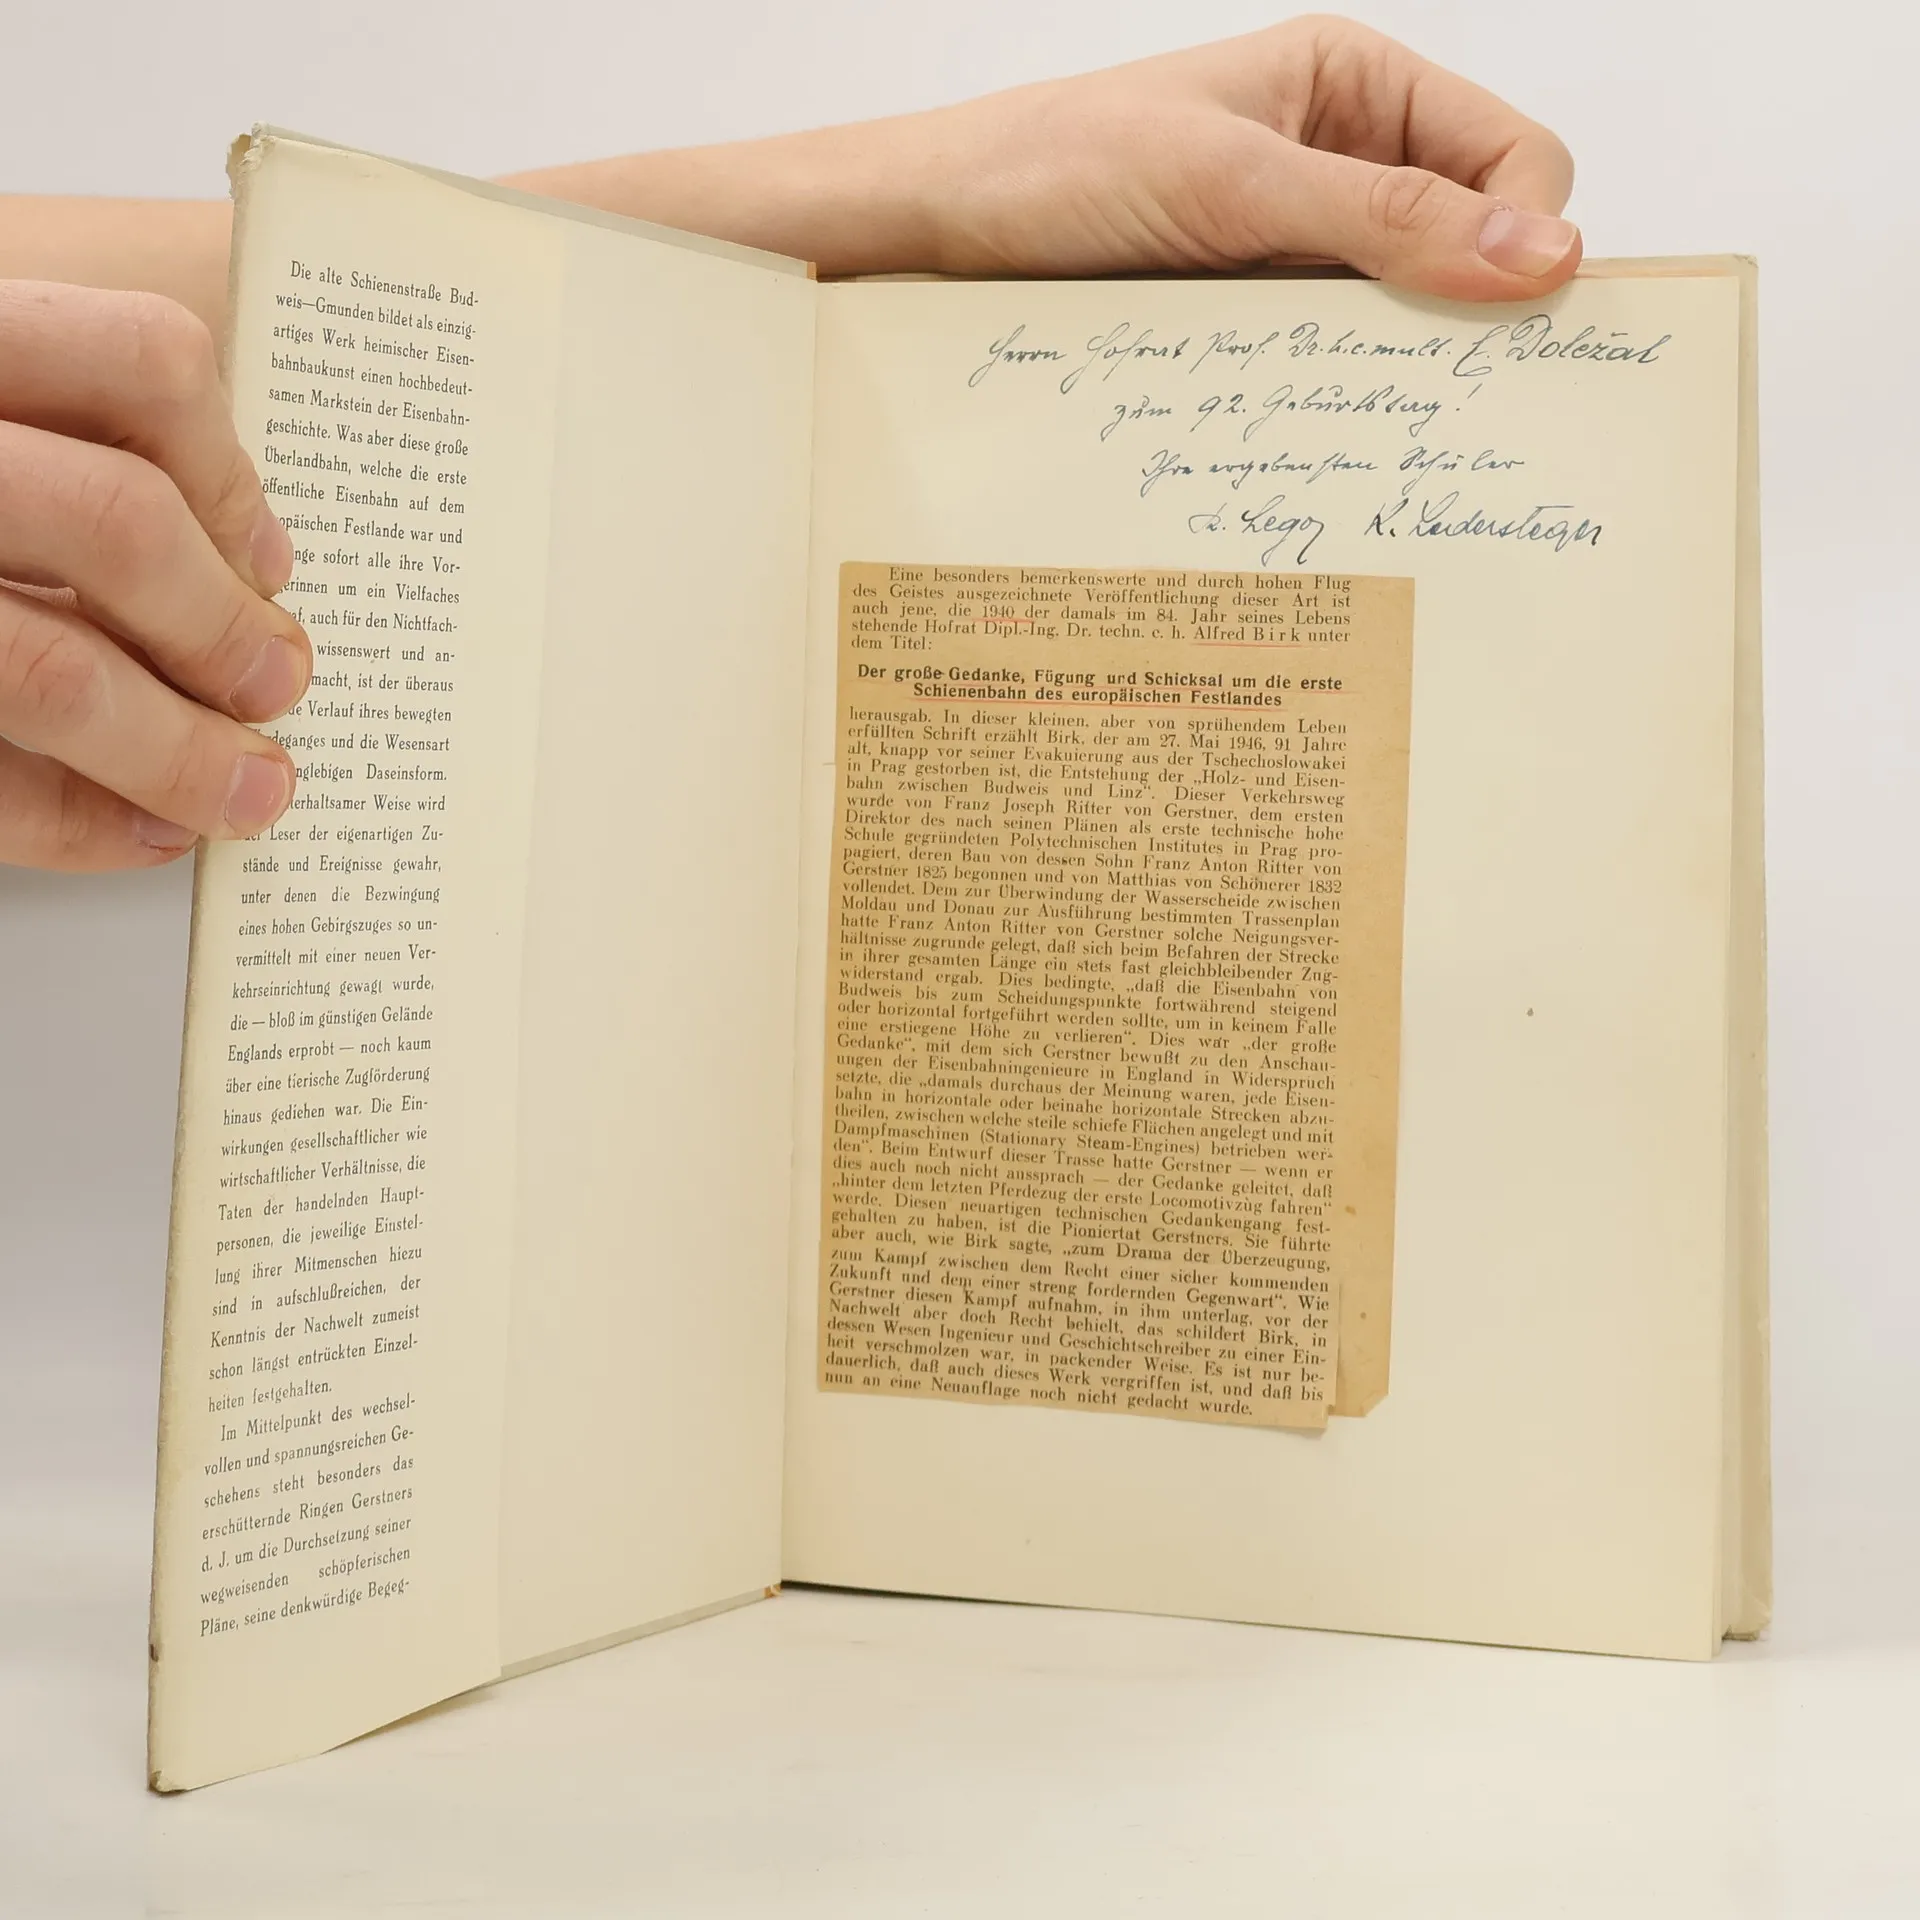 Die alte Schienenstraße Bud-
weis—Gmunden bildet als einzig-
artiges Werk heimischer Eisen-
bahnbaukunst einen hochbedeut-
samen Markstein der Eisenbahn-
geschichte. Was aber diese große
Überlandbahn, welche die erste
öffentliche Eisenbahn auf dem
opäischen Festlande war und
nge sofort alle ihre Vor-
gerinnen um ein Vielfaches
af, auch für den Nichtfach-
wissenswert und an-
macht, ist der überaus
de Verlauf ihres bewegten
deganges und die Wesensart
nglebigen Daseinsform.
terhaltsamer Weise wird
der Leser der eigenartigen Zu-
stände und Ereignisse gewahr,
unter denen die Bezwingung
eines hohen Gebirgszuges so un-
vermittelt mit einer neuen Ver-
kehrseinrichtung gewagt wurde,
die — bloß im günstigen Gelände
Englands erprobt — noch kaum
über eine tierische Zugförderung
hinaus gediehen war. Die Ein-
wirkungen gesellschaftlicher wie
wirtschaftlicher Verhältnisse, die
Taten der handelnden Haupt-
personen, die jeweilige Einstel-
lung ihrer Mitmenschen hiezu
sind in aufschlußreichen, der
Kenntnis der Nachwelt zumeist
schon längst entrückten Einzel-
heiten festgehalten.
Im Mittelpunkt des wechsel-
vollen und spannungsreichen Ge-
schehens steht besonders das
erschütternde Ringen Gerstners
d. J. um die Durchsetzung seiner
wegweisenden schöpferischen
Pläne, seine denkwürdige Begeg-
Herrn Hofrat Prof. Dr. h.c. mult. E. Doležal
zum 92. Geburtstag!
Ihre ergebensten Schüler
K. Lego K. Ledersteger
Eine besonders bemerkenswerte und durch hohen Flug
des Geistes ausgezeichnete Veröffentlichung dieser Art ist
auch jene, die 1940 der damals im 84. Jahr seines Lebens
stehende Hofrat Dipl.-Ing. Dr. techn. e. h. Alfred Birk unter
dem Titel:
Der große Gedanke, Fügung und Schicksal um die erste
Schienenbahn des europäischen Festlandes
herausgab. In dieser kleinen, aber von sprühendem Leben
erfüllten Schrift erzählt Birk, der am 27. Mai 1946, 91 Jahre
alt, knapp vor seiner Evakuierung aus der Tschechoslowakei
in Prag gestorben ist, die Entstehung der „Holz- und Eisen-
bahn zwischen Budweis und Linz“. Dieser Verkehrsweg
wurde von Franz Joseph Ritter von Gerstner, dem ersten
Direktor des nach seinen Plänen als erste technische hohe
Schule gegründeten Polytechnischen Institutes in Prag pro-
pagiert, deren Bau von dessen Sohn Franz Anton Ritter von
Gerstner 1825 begonnen und von Matthias von Schönerer 1832
vollendet. Dem zur Überwindung der Wasserscheide zwischen
Moldau und Donau zur Ausführung bestimmten Trassenplan
hatte Franz Anton Ritter von Gerstner solche Neigungsver-
hältnisse zugrunde gelegt, daß sich beim Befahren der Strecke
in ihrer gesamten Länge ein stets fast gleichbleibender Zug-
widerstand ergab. Dies bedingte, „daß die Eisenbahn von
Budweis bis zum Scheidungspunkte fortwährend steigend
oder horizontal fortgeführt werden sollte, um in keinem Falle
eine erstiegene Höhe zu verlieren“. Dies war „der große
Gedanke“, mit dem sich Gerstner bewußt zu den Anschau-
ungen der Eisenbahningenieure in England in Widerspruch
setzte, die „damals durchaus der Meinung waren, jede Eisen-
bahn in horizontale oder beinahe horizontale Strecken abzu-
theilen, zwischen welche steile schiefe Flächen angelegt und mit
Dampfmaschinen (Stationary Steam-Engines) betrieben wer-
den“. Beim Entwurf dieser Trasse hatte Gerstner — wenn er
dies auch noch nicht aussprach — der Gedanke geleitet, daß
„hinter dem letzten Pferdezug der erste Locomotivzug fahren“
werde. Diesen neuartigen technischen Gedankengang fest-
gehalten zu haben, ist die Pioniertat Gerstners. Sie führte
aber auch, wie Birk sagte, „zum Drama der Überzeugung,
zum Kampf zwischen dem Recht einer sicher kommenden
Zukunft und dem einer streng fordernden Gegenwart“. Wie
Gerstner diesen Kampf aufnahm, in ihm unterlag, vor der
Nachwelt aber doch Recht behielt, das schildert Birk, in
dessen Wesen Ingenieur und Geschichtschreiber zu einer Ein-
heit verschmolzen war, in packender Weise. Es ist nur be-
dauerlich, daß auch dieses Werk vergriffen ist, und daß bis
nun an eine Neuauflage noch nicht gedacht wurde.